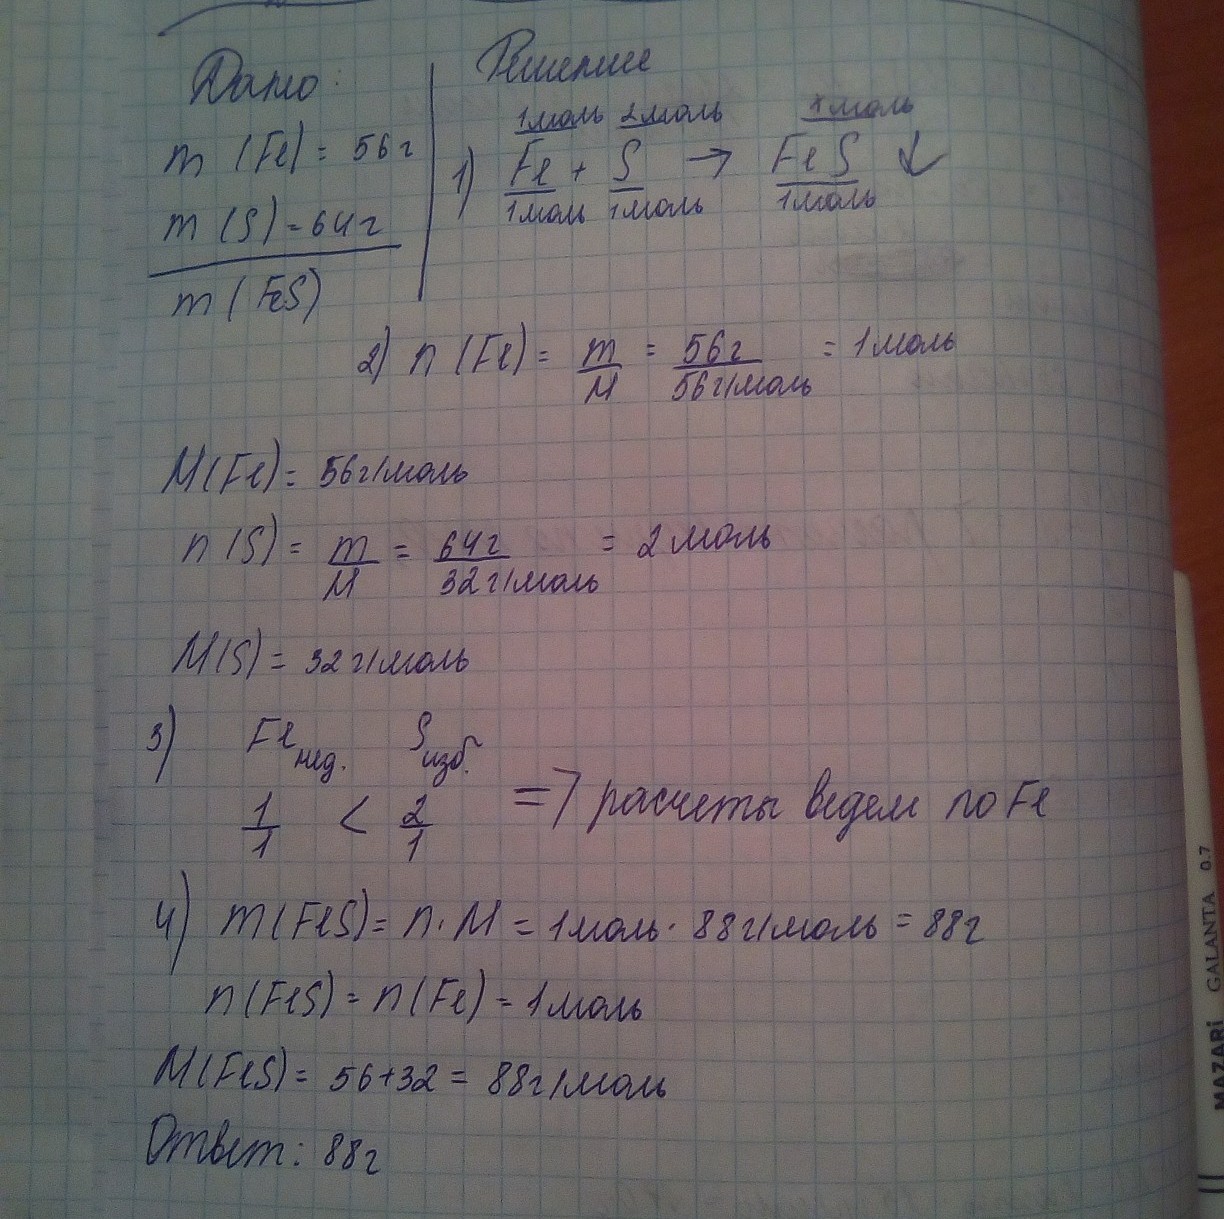 Дано:
m (Fe) = 56г
m (S) = 64г
m (FeS)
Решение
1моль 2моль xмоль
1) Fe + S → FeS ↓
1моль 1моль 1моль
2) n (Fe) = m/M = 56г/56г/моль = 1моль
M(Fe) = 56г/моль
n(S) = m/M = 64г/32г/моль = 2моль
M(S) = 32г/моль
3) Fe нед. S изб.
1/1 < 2/1 => расчеты ведем по Fe
4) m(FeS) = n·M = 1моль · 88г/моль = 88г
n(FeS) = n(Fe) = 1моль
M(FeS) = 56+32 = 88г/моль
Ответ: 88г
MAZARi GALANTA 0.7